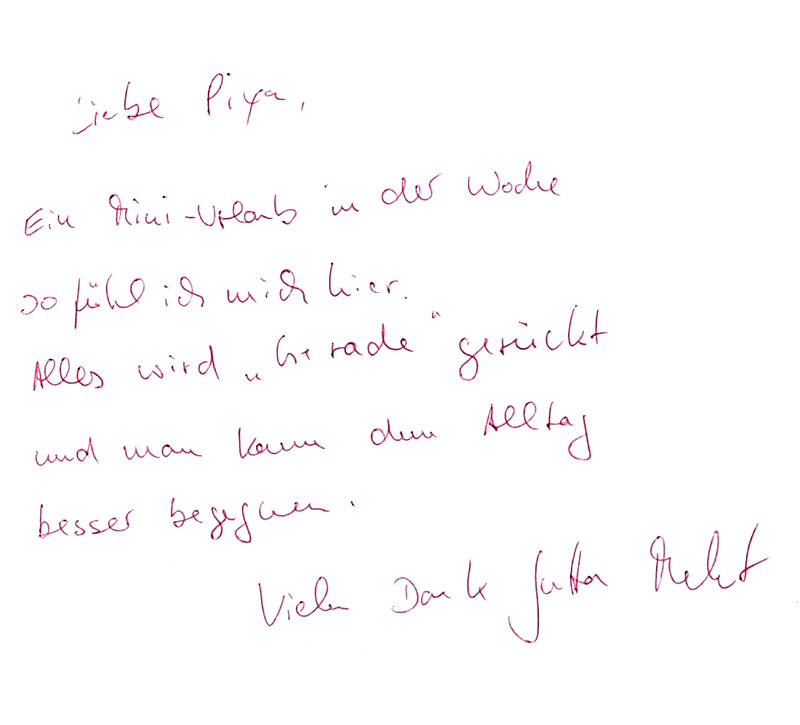 Liebe Piya,
Ein Mini-Urlaub in der Woche
so fühl ich mich hier.
Alles wird „Gerade" gerückt
und man kann dem Alltag
besser begegnen.
Vielen Dank Jutta